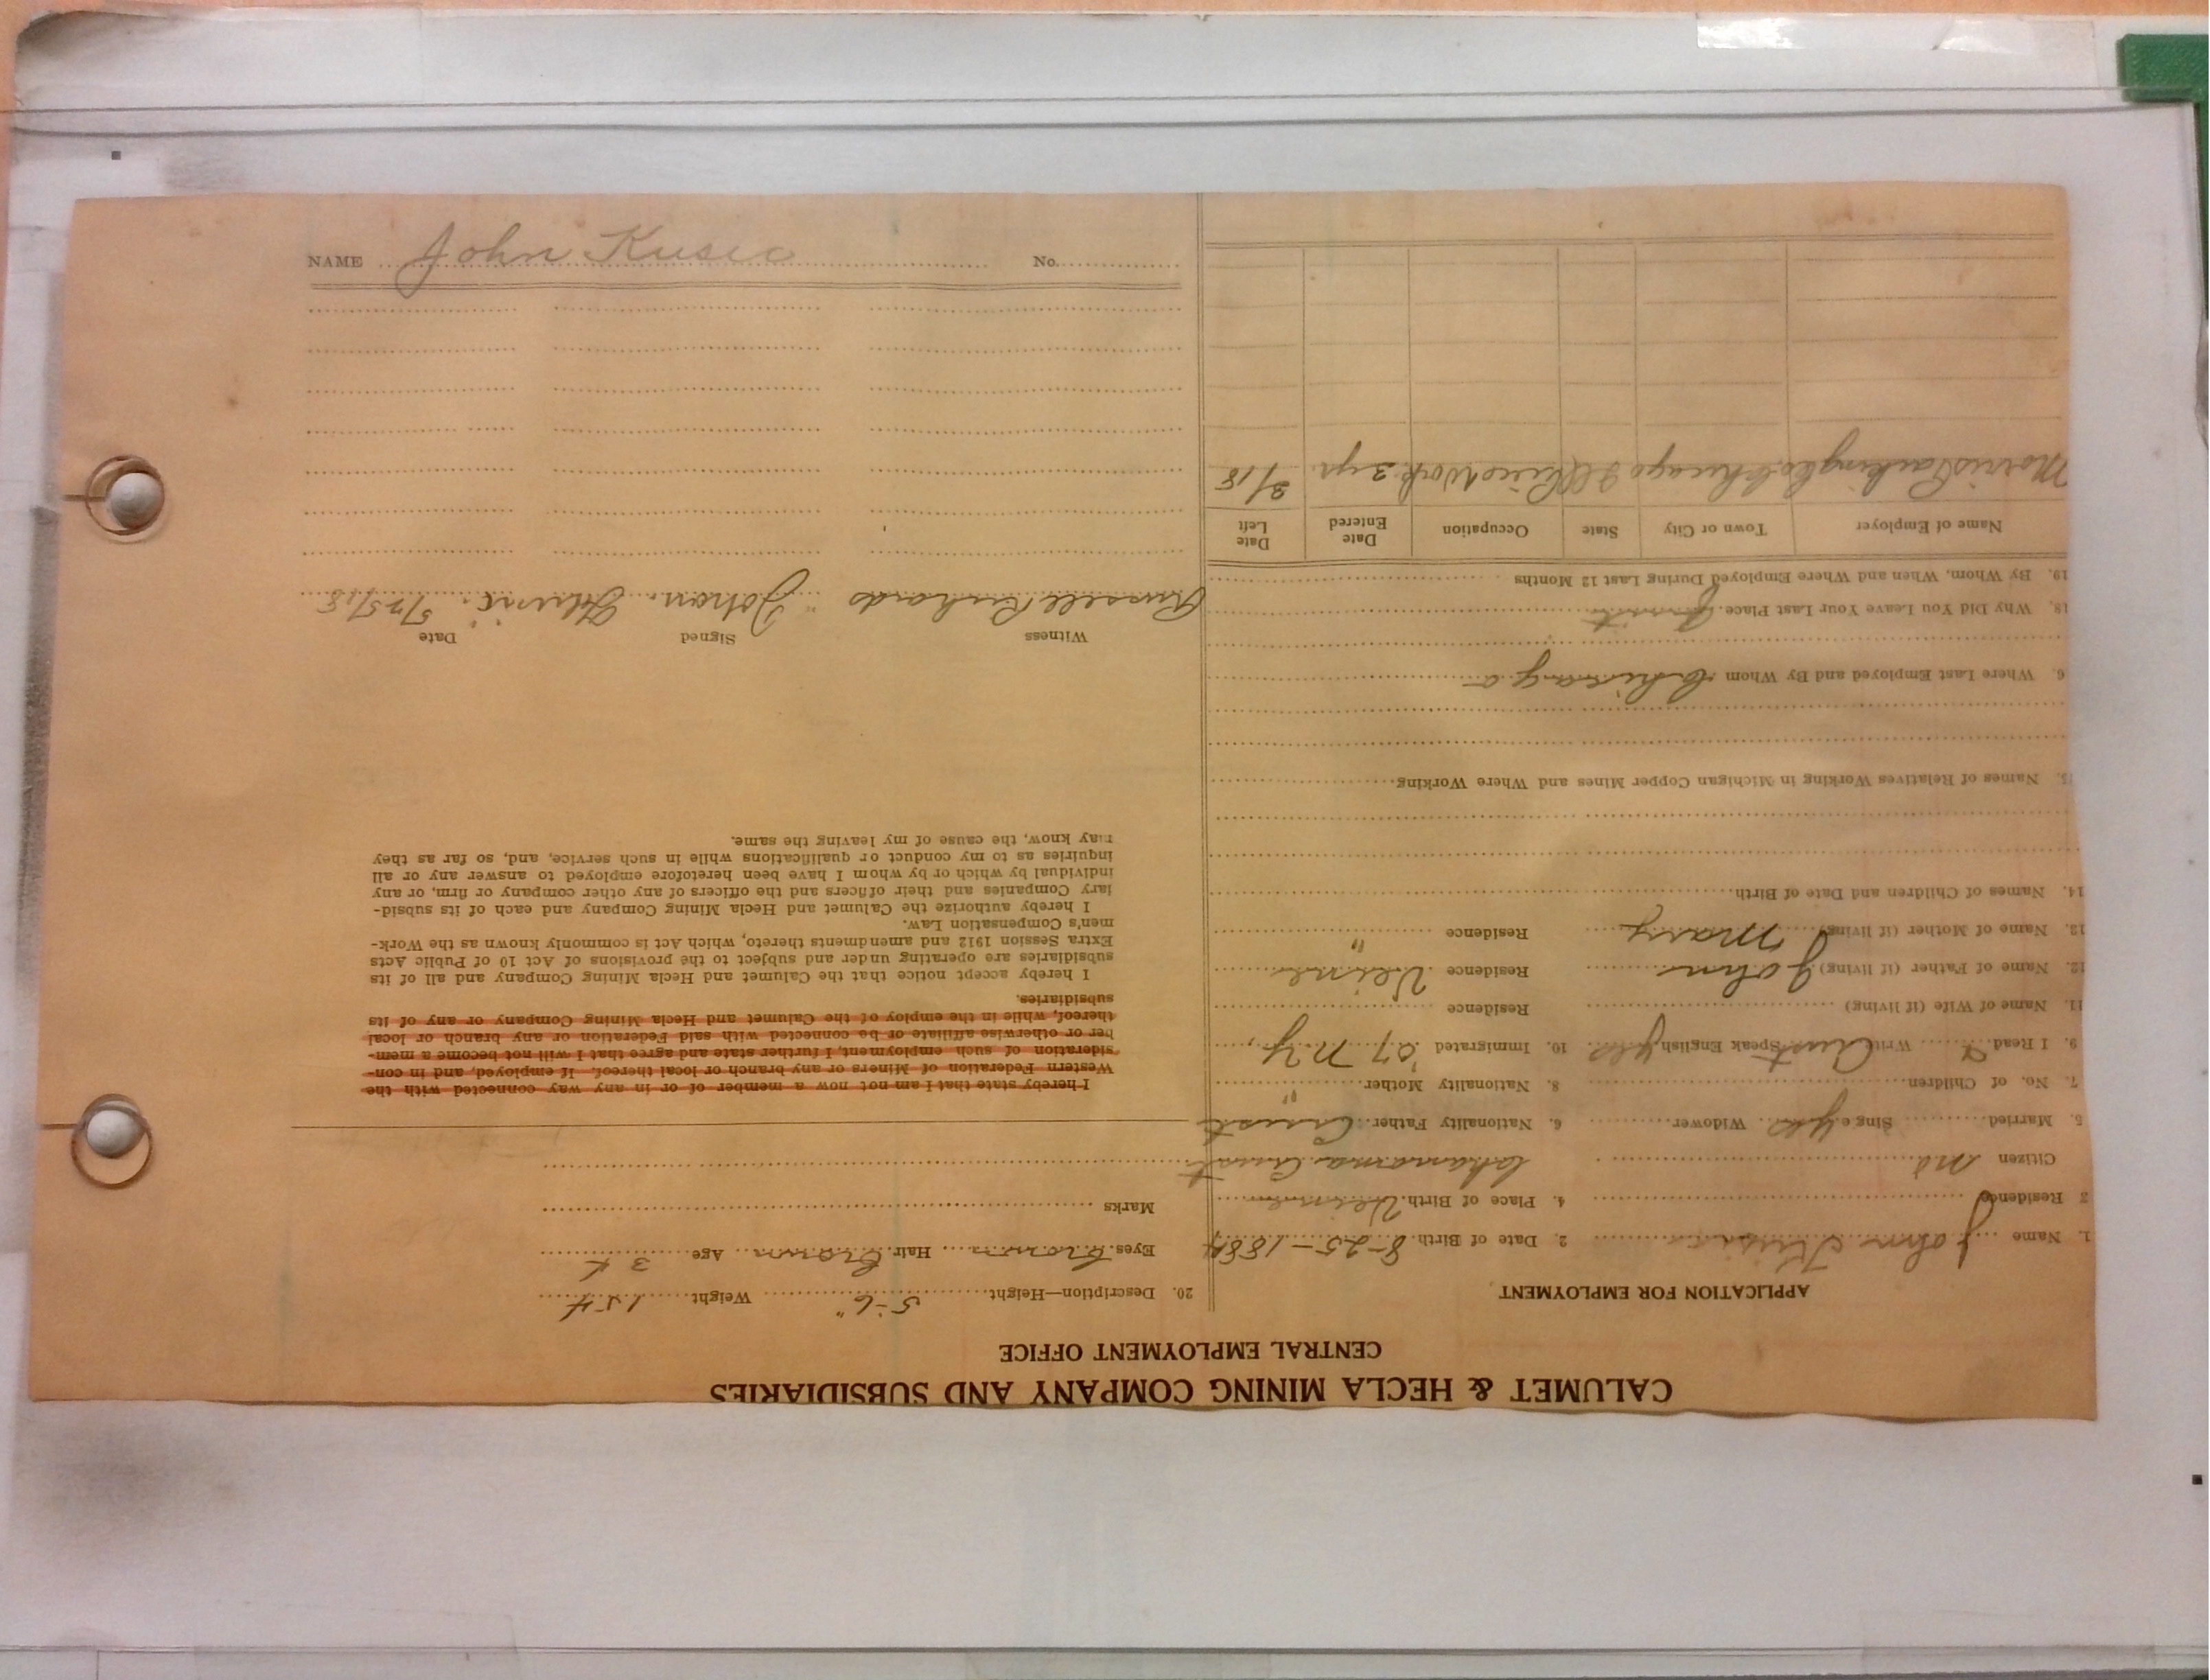 CALUMET & HECLA MINING COMPANY AND SUBSIDIARIES
CENTRAL EMPLOYMENT OFFICE
APPLICATION FOR EMPLOYMENT
1. Name John Kusic 2. Date of Birth 8-25-1884
3 Residence 4. Place of Birth
Citizen no
5. Married Single yes Widower 6. Nationality Father Aust
7. No. of Children 8. Nationality Mother "
9. I Read Write Aust Speak English yes 10. Immigrated '07 N Y,
11. Name of Wife (if living) Residence
12. Name of Father (if living) John Residence
12. Name of Mother (if living) Mary Residence "
14. Names of Children and Date of Birth
15. Names of Relatives Working in Michigan Copper Mines and Where Working
6. Where Last Employed and By Whom Chicago
18. Why Did You Leave Your Last Place Quit
19. By Whom, When and Where Employed During Last 12 Months
Name of Employer Town or City State Occupation Date Entered Date Left
Morris Packing Co. Chicago Ill Work 3 yr. 3/18
20. Description—Height 5-6" Weight 154
Eyes brown Hair brown Age 34
Marks
I hereby state that I am not now a member of or in any way connected with the
Western Federation of Miners or any branch or local thereof. If employed, and in con-
sideration of such employment, I further state and agree that I will not become a mem-
ber or otherwise affiliate or be connected with said Federation or any branch or local
thereof, while in the employ of the Calumet and Hecla Mining Company or any of its
subsidiaries.
I hereby accept notice that the Calumet and Hecla Mining Company and all of its
subsidiaries are operating under and subject to the provisions of Act 10 of Public Acts
Extra Session 1912 and amendments thereto, which Act is commonly known as the Work-
men's Compensation Law.
I hereby authorize the Calumet and Hecla Mining Company and each of its subsid-
iary Companies and their officers and the officers of any other company or firm, or any
individual by which or by whom I have been heretofore employed to answer any or all
inquiries as to my conduct or qualifications while in such service, and, so far as they
may know, the cause of my leaving the same.
Witness Signed Date
Russell Richards 5/25/18
NAME John Kusic No.